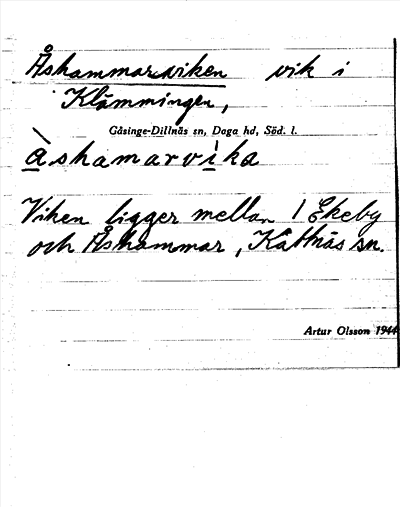 Åshammarviken vik i
Klämmingen,
Gåsinge-Dillnäs sn, Daga hd, Söd. l.
àshamarvìka
Viken ligger mellan Ekeby
och Åshammar, Kattnäs sn.
Artur Olsson 1944